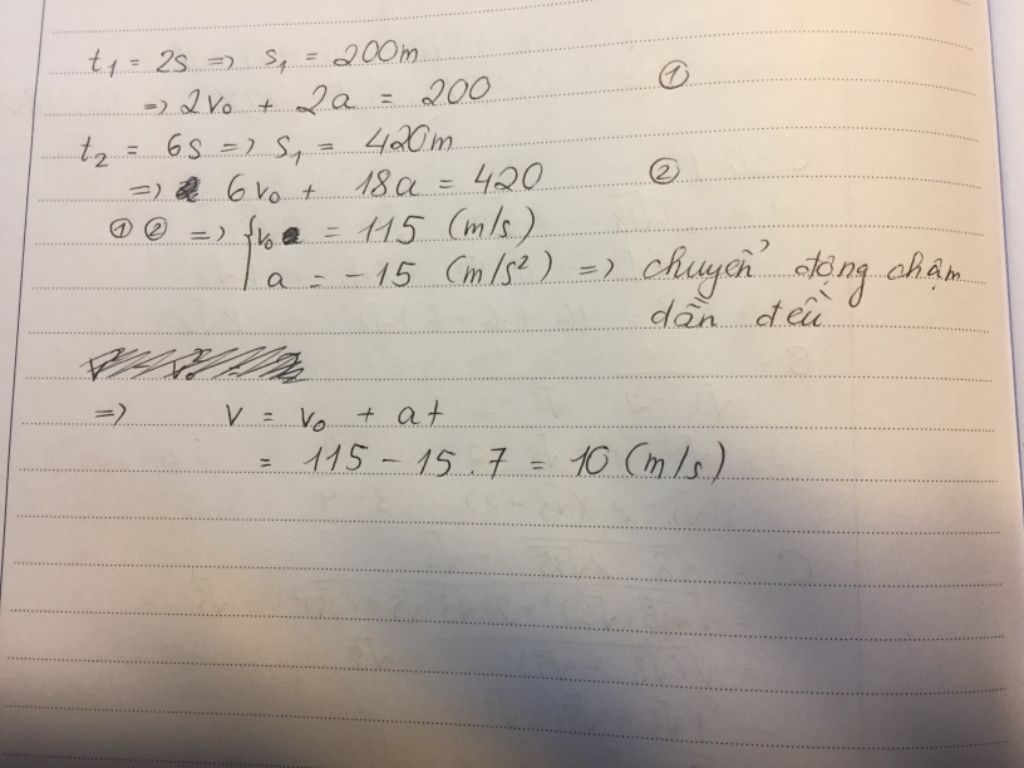 t₁ = 2s => s₁ = 200m
=> 2v₀ + 2a = 200 ①
t₂ = 6s => s₁ = 420m
=> 6v₀ + 18a = 420 ②
① ② => { v₀ = 115 (m/s)
a = -15 (m/s²) => chuyển động chậm
dần đều
=> v = v₀ + at
= 115 - 15.7 = 10 (m/s)